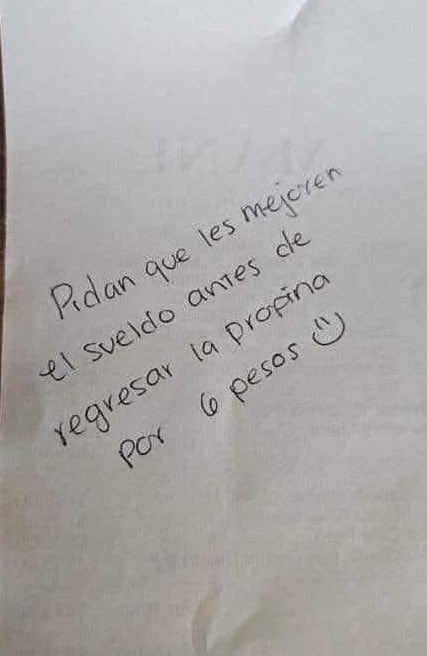 Pidan que les mejoren
el sueldo antes de
regresar la propina
por 6 pesos